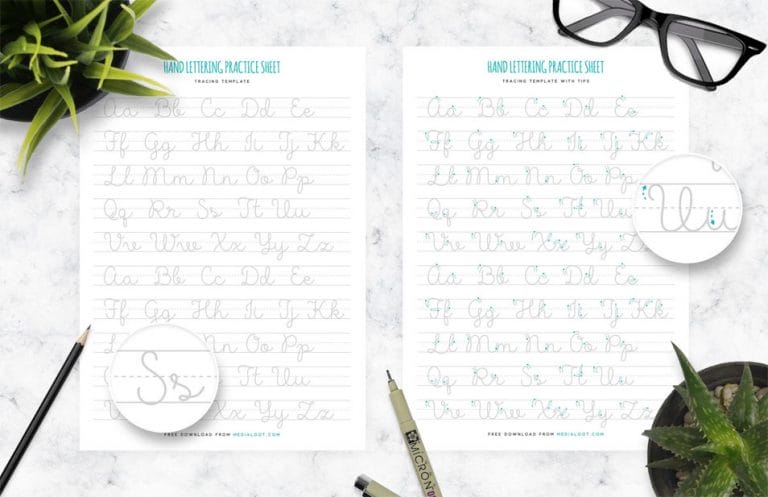 HAND LETTERING PRACTICE SHEET
TRACING TEMPLATE
Aa Bb Cc Dd Ee
Ff Gg Hh Ii Jj Kk
Ll Mm Nn Oo Pp
Qq Rr Ss Tt Uu
Vv Ww Xx Yy Zz
Aa Bb Cc Dd Ee
Ff Gg Hh Ii Jj Kk
Nn Oo Pp
Tt Uu
Yy Zz
Ss
FREE DOWNLOAD FROM MEDIALOOT.COM
HAND LETTERING PRACTICE SHEET
TRACING TEMPLATE WITH TIPS
Aa Bb Cc Dd Ee
Ff Gg Hh Ii Jj Kk
Ll Mm Nn Oo Pp
Qq Rr Ss Tt Uu
Vv Ww Xx Yy Zz
Aa Bb Cc Dd Ee
Ff Gg Hh Ii Jj Kk
Ll Mm Nn Oo Pp
Qq Rr Ss Tt Uu
Vv Ww Xx Yy Zz
Uu
FREE DOWNLOAD FROM MEDIALOOT.COM
MICRON